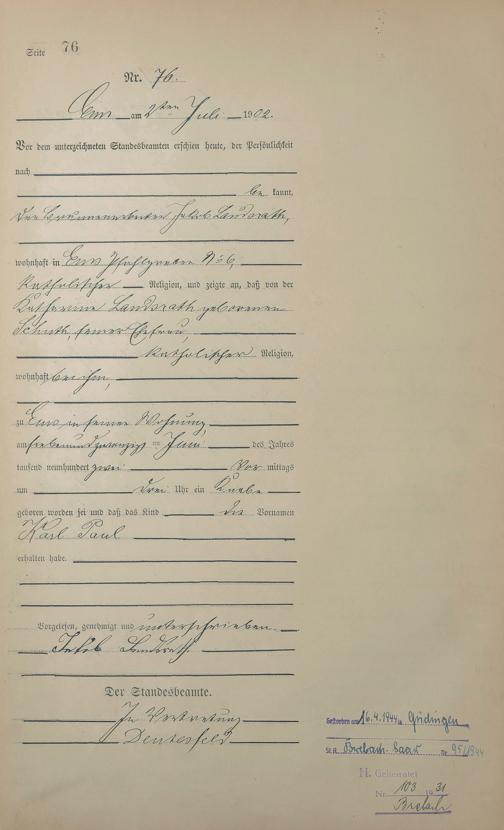 Seite 76
Nr. 76.
Ems am 2ten Juli 1902.
Vor dem unterzeichneten Standesbeamten erschien heute, der Persönlichkeit
nach
be kannt,
der Brunnenarbeiter Jakob Landsrath,
wohnhaft in Ems Pfahlgraben No 6,
katholischer Religion, und zeigte an, daß von der
Katharina Landsrath geborenen
Schuth, seiner Ehefrau,
katholischer Religion,
wohnhaft bei ihm,
zu Ems in seiner Wohnung,
am siebenundzwanzigsten Juni des Jahres
tausend neunhundert zwei Vor mittags
um drei Uhr ein Knabe
geboren worden sei und daß das Kind die Vornamen
Karl Paul
erhalten habe.
Vorgelesen, genehmigt und unterschrieben
Jakob Landsrath
Der Standesbeamte.
In Vertretung
Gestorben am 16.4.1944 in Güdingen
St.A. Brebach-Saar Nr 95/1944
H. Geheiratet
Nr. 103 19 31
Brebach